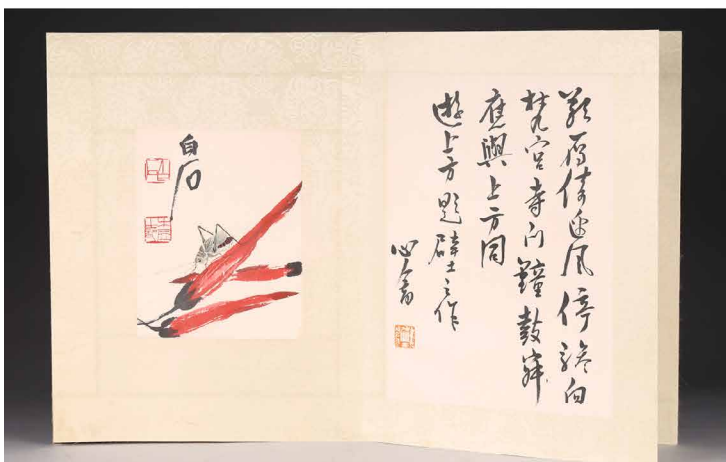 風停驂向
梵宮寺門鐘鼓寂
應與上方同
遊上方題壁之作
心畬
白石